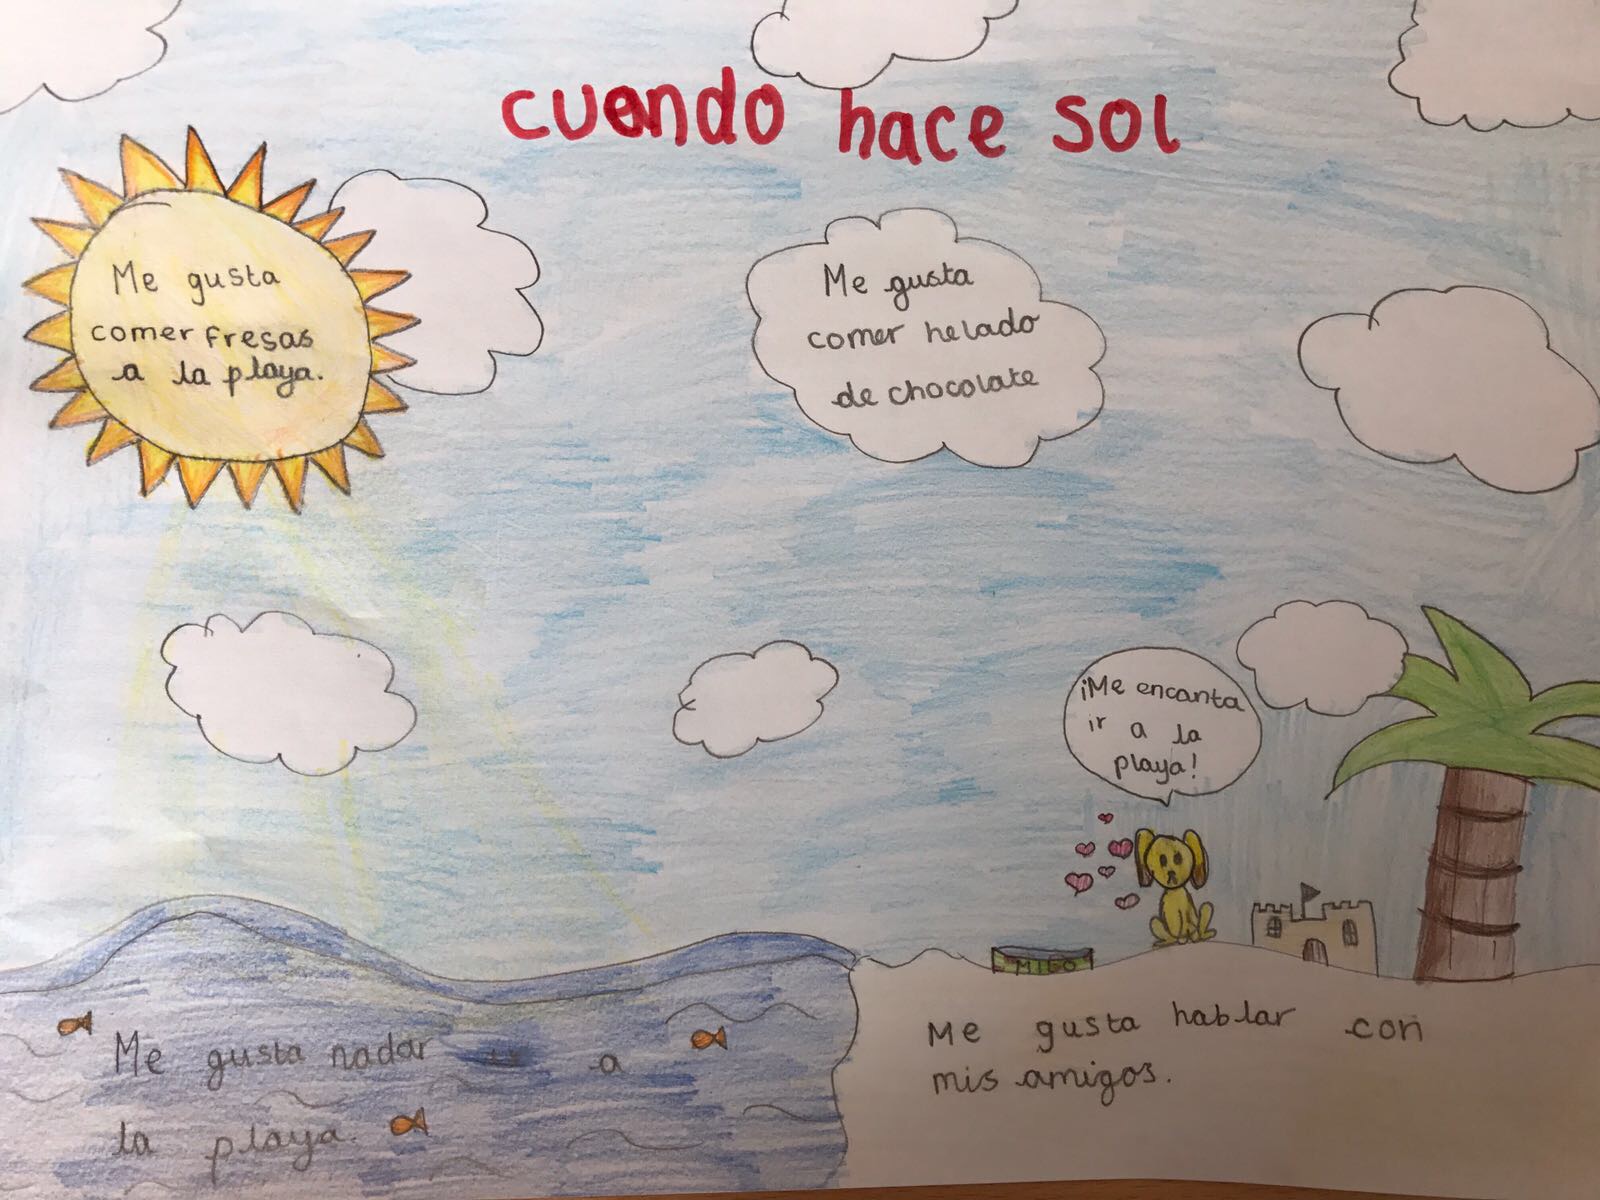 cuando hace sol
Me gusta
comer fresas
a la playa.
Me gusta
comer helado
de chocolate
¡Me encanta
ir a la
playa!
MILO
Me gusta nadar a
la playa.
Me gusta hablar con
mis amigos.